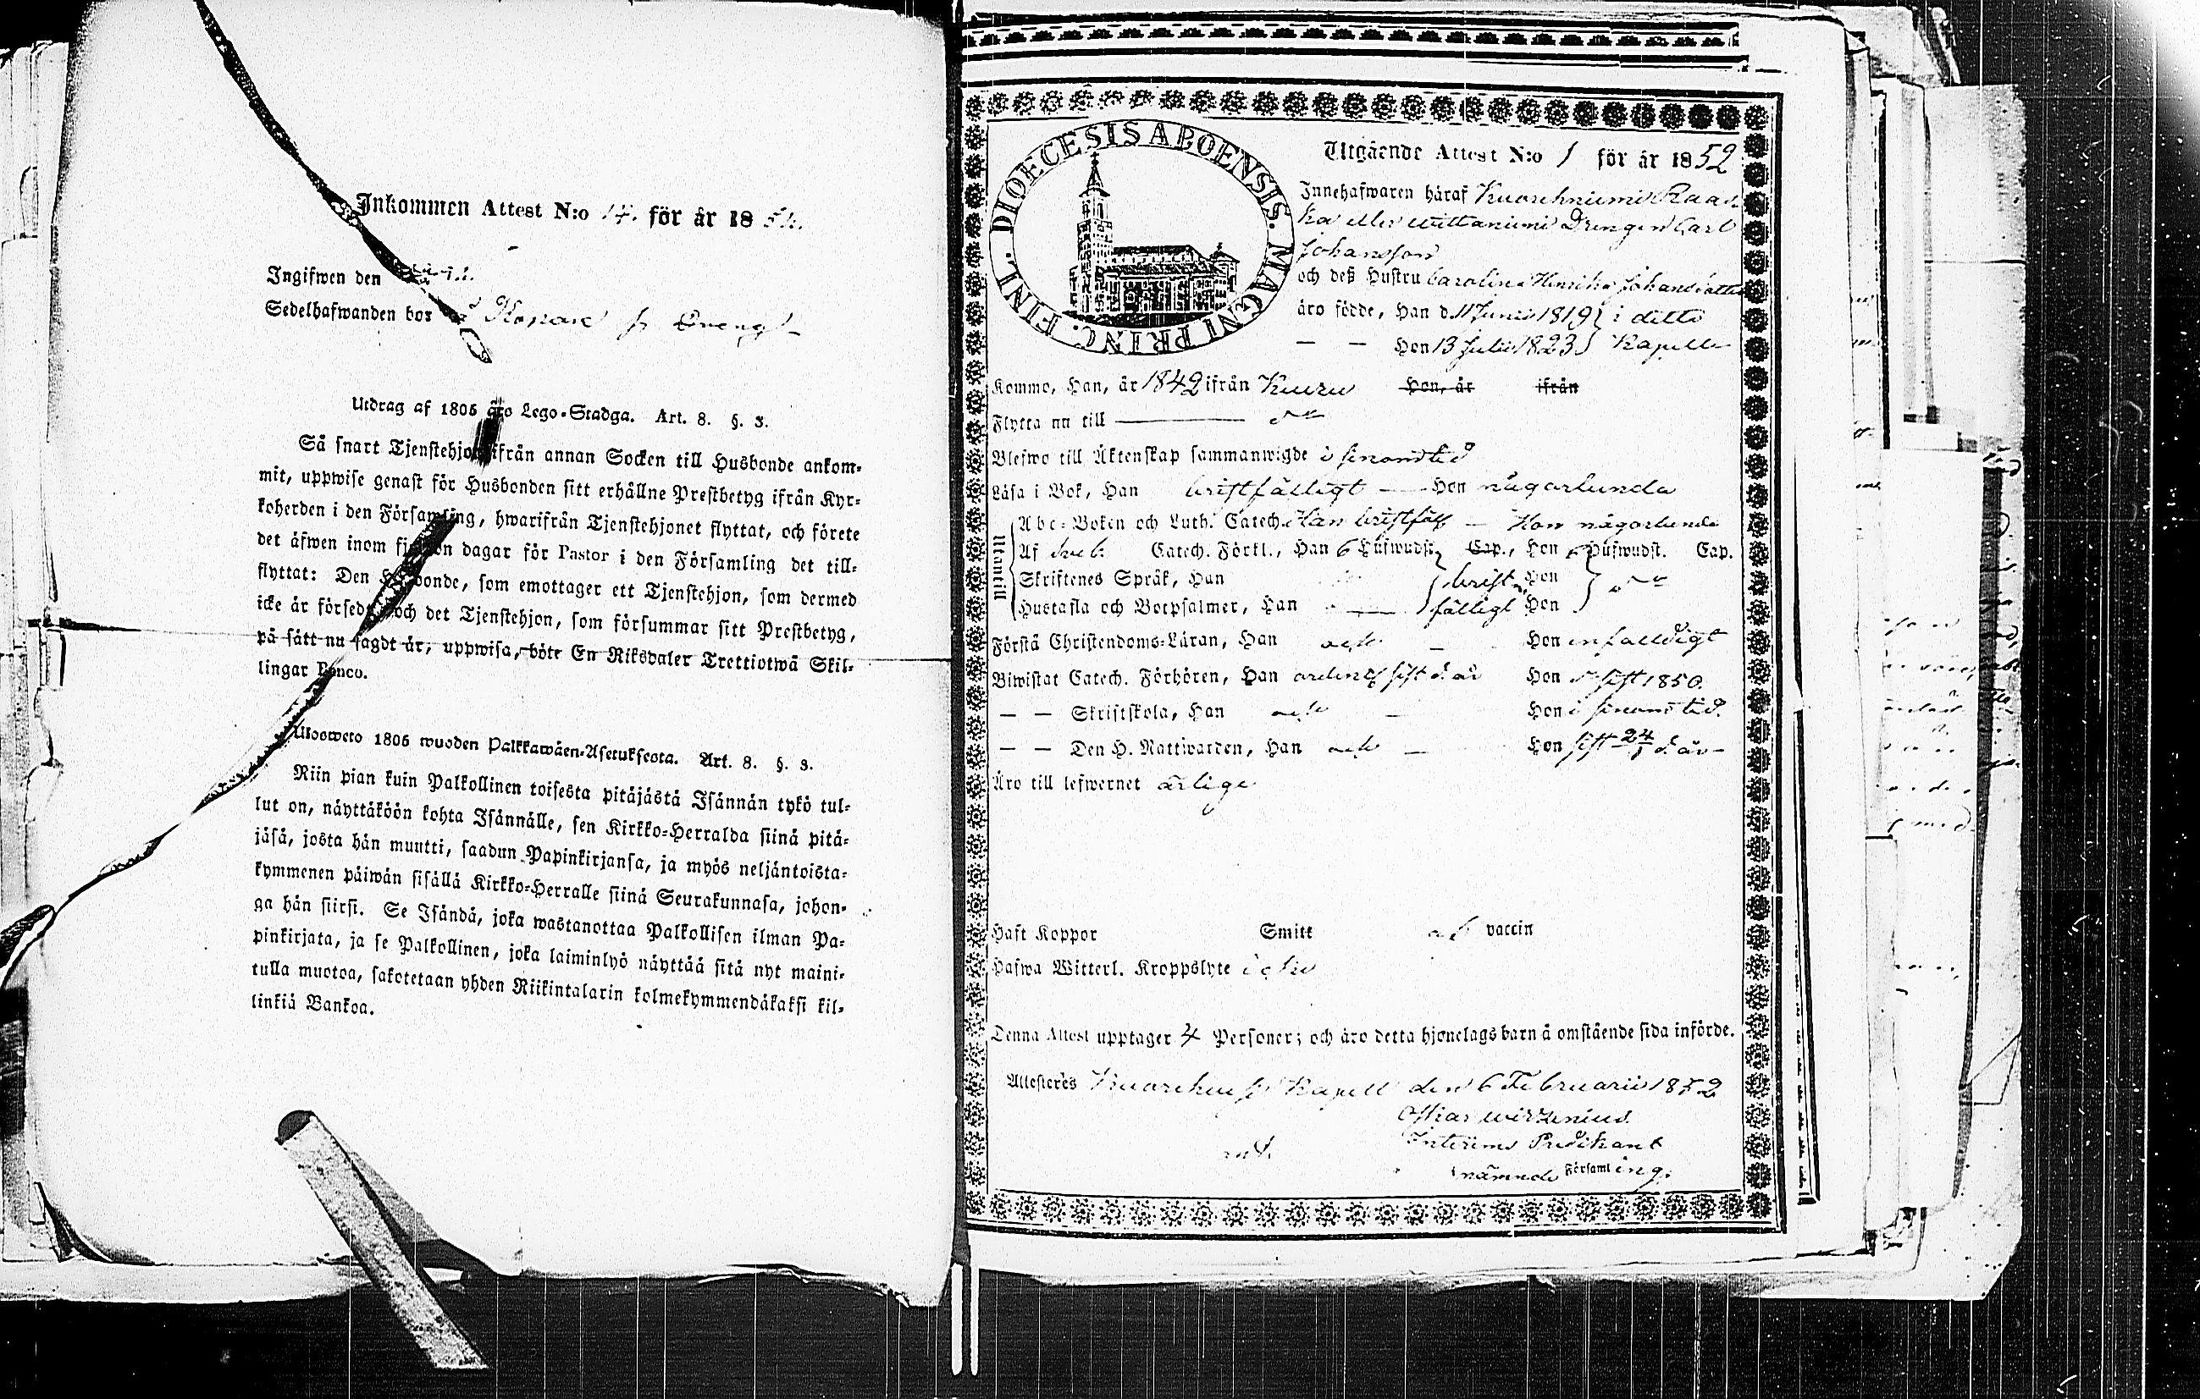 Inkommen Attest N:o 14. för år 18
Ingifwen den
Sedelhafwanden bor
Utdrag af 1805 års Lego-Stadga. Art. 8. §. 3.
Så snart Tjenstehjon ifrån annan Socken till Husbonde ankom-
mit, uppwise genast för Husbonden sitt erhållne Prestbetyg ifrån Kyr-
koherden i den Församling, hwarifrån Tjenstehjonet flyttat, och förete
det äfwen inom fjorton dagar för Pastor i den Församling det till-
flyttat: Den Husbonde, som emottager ett Tjenstehjon, som dermed
icke är försedt, och det Tjenstehjon, som försummar sitt Prestbetyg,
på sätt nu sagdt är, uppwisa, böte En Riksdaler Trettiotwå Skil-
lingar Banco.
Ulosweto 1805 wuoden Palkkawäen-Asetuksesta. Art. 8. §. 3.
Niin pian kuin Palkollinen toisesta pitäjästä Isännän tykö tul-
lut on, näyttäköön kohta Isännälle, sen Kirkko-Herralda siinä pitä-
jäsä, josta hän muutti, saadun Papinkirjansa, ja myös neljäntoista-
kymmenen päiwän sisällä Kirkko-Herralle siinä Seurakunnasa, johon-
ga hän siirsi. Se Isändä, joka wastanottaa Palkollisen ilman Pa-
pinkirjata, ja se Palkollinen, joka laiminlyö näyttää sitä nyt maini-
tulla muotoa, sakotetaan yhden Riikintalarin kolmekymmendäkaksi kil-
linkiä Bankoa.
DIOECESIS ABOENSIS. MAGNI PRINC. FINL.
Utgående Attest N:o 1 för år 1852
Innehafwaren häraf
Drengen Carl
Johansson
och deß Hustru Carolina Henrika Johansdotter
äro födde, Han d. 11 Junii 1819 } i detta
— — Hon 13 Julii 1823 } Kapell
Komme, Han, år 1842 ifrån Kuru Hon, år ifrån
Flytta nu till
Blefwo till Äktenskap sammanwigde i sinom tid
Läsa i Bok, Han bristfälligt — Hon någorlunda
Utantill
Abc-Boken och Luth. Catech. Han bristfäll — Hon någorlunda
Af Cateh. Förkl., Han 6 Hufwudst. Cap., Hon 6 Hufwudst. Cap.
Skriftenes Språk, Han } brist- Hon
Hustafla och Botpsalmer, Han } fälligt Hon
Förstå Christendoms-Läran, Han Hon enfaldigt
Biwistat Catech. Förhören, Han sist d. år Hon sist 1850.
— — Skriftskola, Han Hon i sinom tid.
— — Den H. Nattwarden, Han Hon sist 24/1 d. år
Äro till lefwernet ärlige
Haft Koppor Smitt vaccin
Hafwa Witterl. Kroppslyte icke
Denna Attest upptager 4 Personer; och äro detta hjonelags barn å omstående sida införde.
Attesteres Kapell den 6 Februarii 1852
Oskar Wirzenius
Interims Predikant
nämnde Församling.